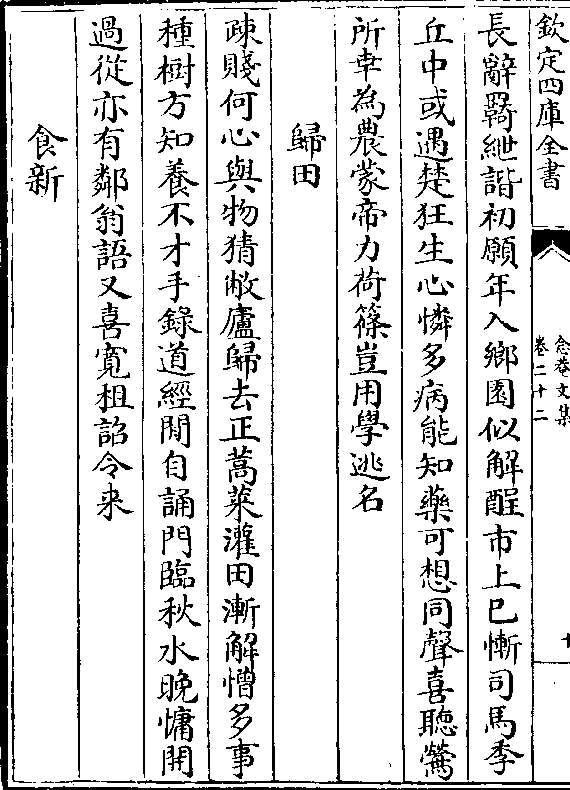 欽定四庫全書
念菴文集
卷二十二
十
長辭羇紲諧初願年入鄉園似解酲市上已慚司馬季
丘中或遇楚狂生心憐多病能知藥可想同聲喜聽鶯
所幸為農蒙帝力荷篠豈用學逃名
歸田
疎賤何心與物猜敝廬歸去正蒿萊灌田漸解憎多事
種樹方知養不才手錄道經閒自誦門臨秋水晚慵開
過從亦有鄰翁語又喜寬租詔令来
食新